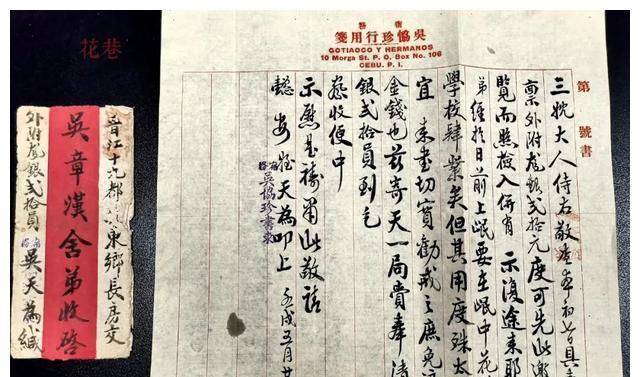 花巷
晉江十九都
東鄉長房交
吳章漢舍弟收啓
外附龍銀貳拾員
吳天為小緘
吳協珍行用箋
GOTIAOCO Y HERMANOS
10 Morga St. P. O. Box No. 106
CEBU. P. I.
第 號書
三忱大人侍右敬查五月初七日具
稟外附龍銀貳拾元度可先此邀
覽而照檢入併有 示復途來耶
弟經於日前上岷要在岷中花
學校肄業矣但其用度殊太
宜 来書切實勸戒之庶免
金錢也茲寄天一局賫奉清
銀貳拾員到乞
查收便中
示慰是禱肅此敬請
安 姪天為叩上 壬戌五月廿
吳協珍書柬